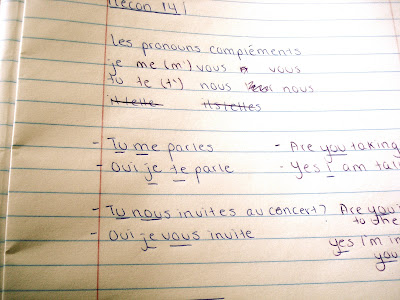 Leçon 14
les pronouns compléments
je me (m') vous vous
tu te (t') nous nous
il telle ils telles
- Tu me parles - Are you taking
- Oui je te parle - Yes I am tal
- Tu nous invites au concert? Are you
to the
- Oui je vous invite yes I'm in
you